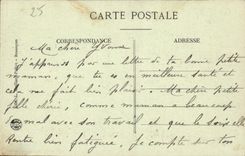 25
CARTE POSTALE
CORRESPONDANCE ADRESSE
Ma chère Yvonne
J'apprends par une lettre de ta bonne petite
maman, que tu es en meilleure santé et
cela me fait bien plaisir. Ma chère petite
fille chérie, comme maman a beaucoup
de mal avec son travail et que le soir elle
rentre bien fatiguée, je compte sur ton